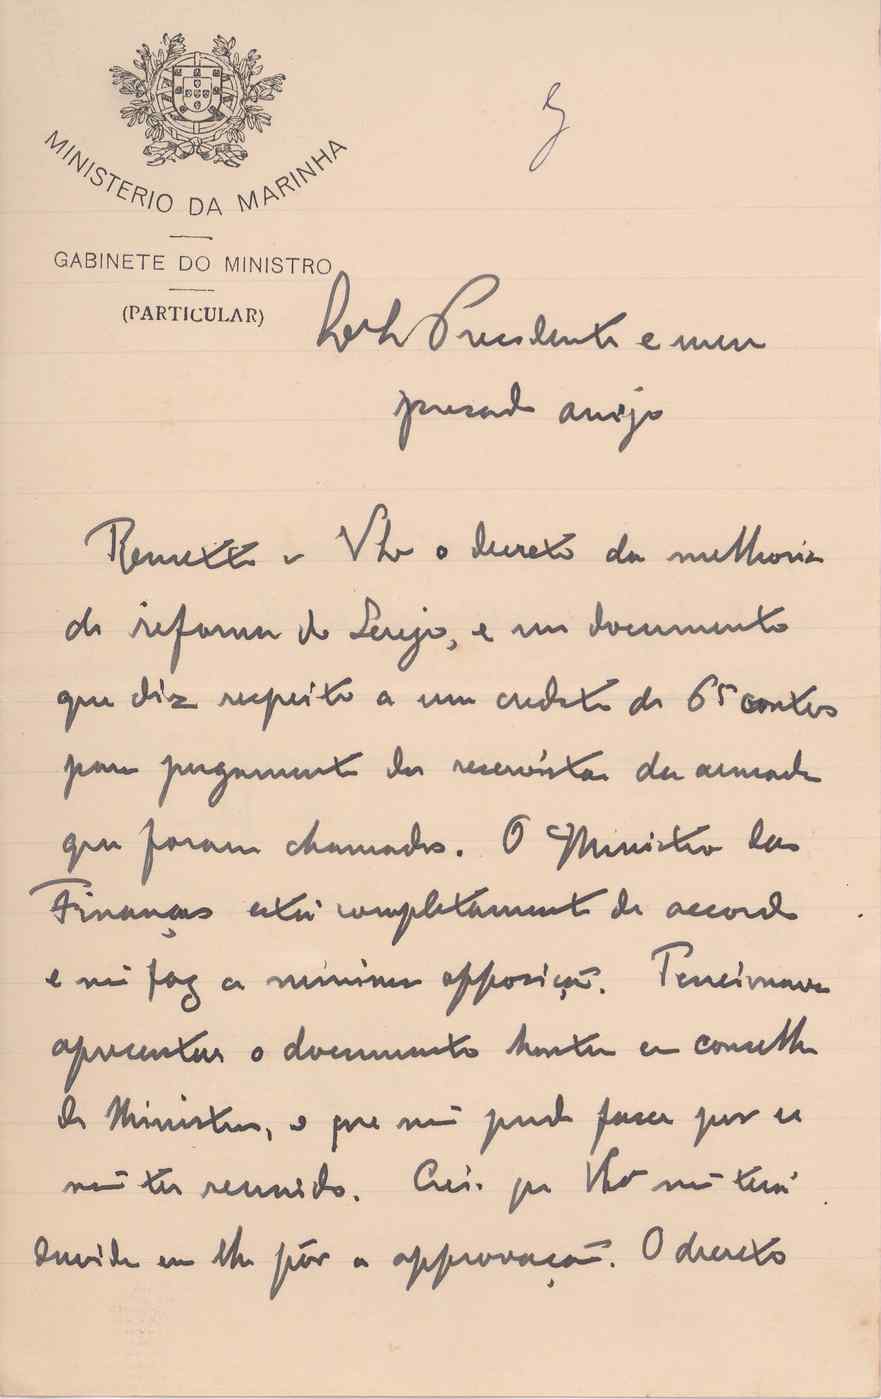 5
MINISTERIO DA MARINHA
GABINETE DO MINISTRO
(PARTICULAR)
Presidente e meu
presado amigo
Remetto a VExª o decreto da melhoria
de reforma do Serejo, e um documento
que diz respeito a um credito de 65 contos
para pagamento dos reservistas da armada
que foram chamados. O Ministro das
Finanças está completamente de accordo
e não faz a minima opposição. Tencionava
apresentar o documento hontem em conselho
de Ministros, o que não pude fazer por se
não ter reunido. Creio que VExª não terá
duvida em lhe pôr a approvação. O decreto